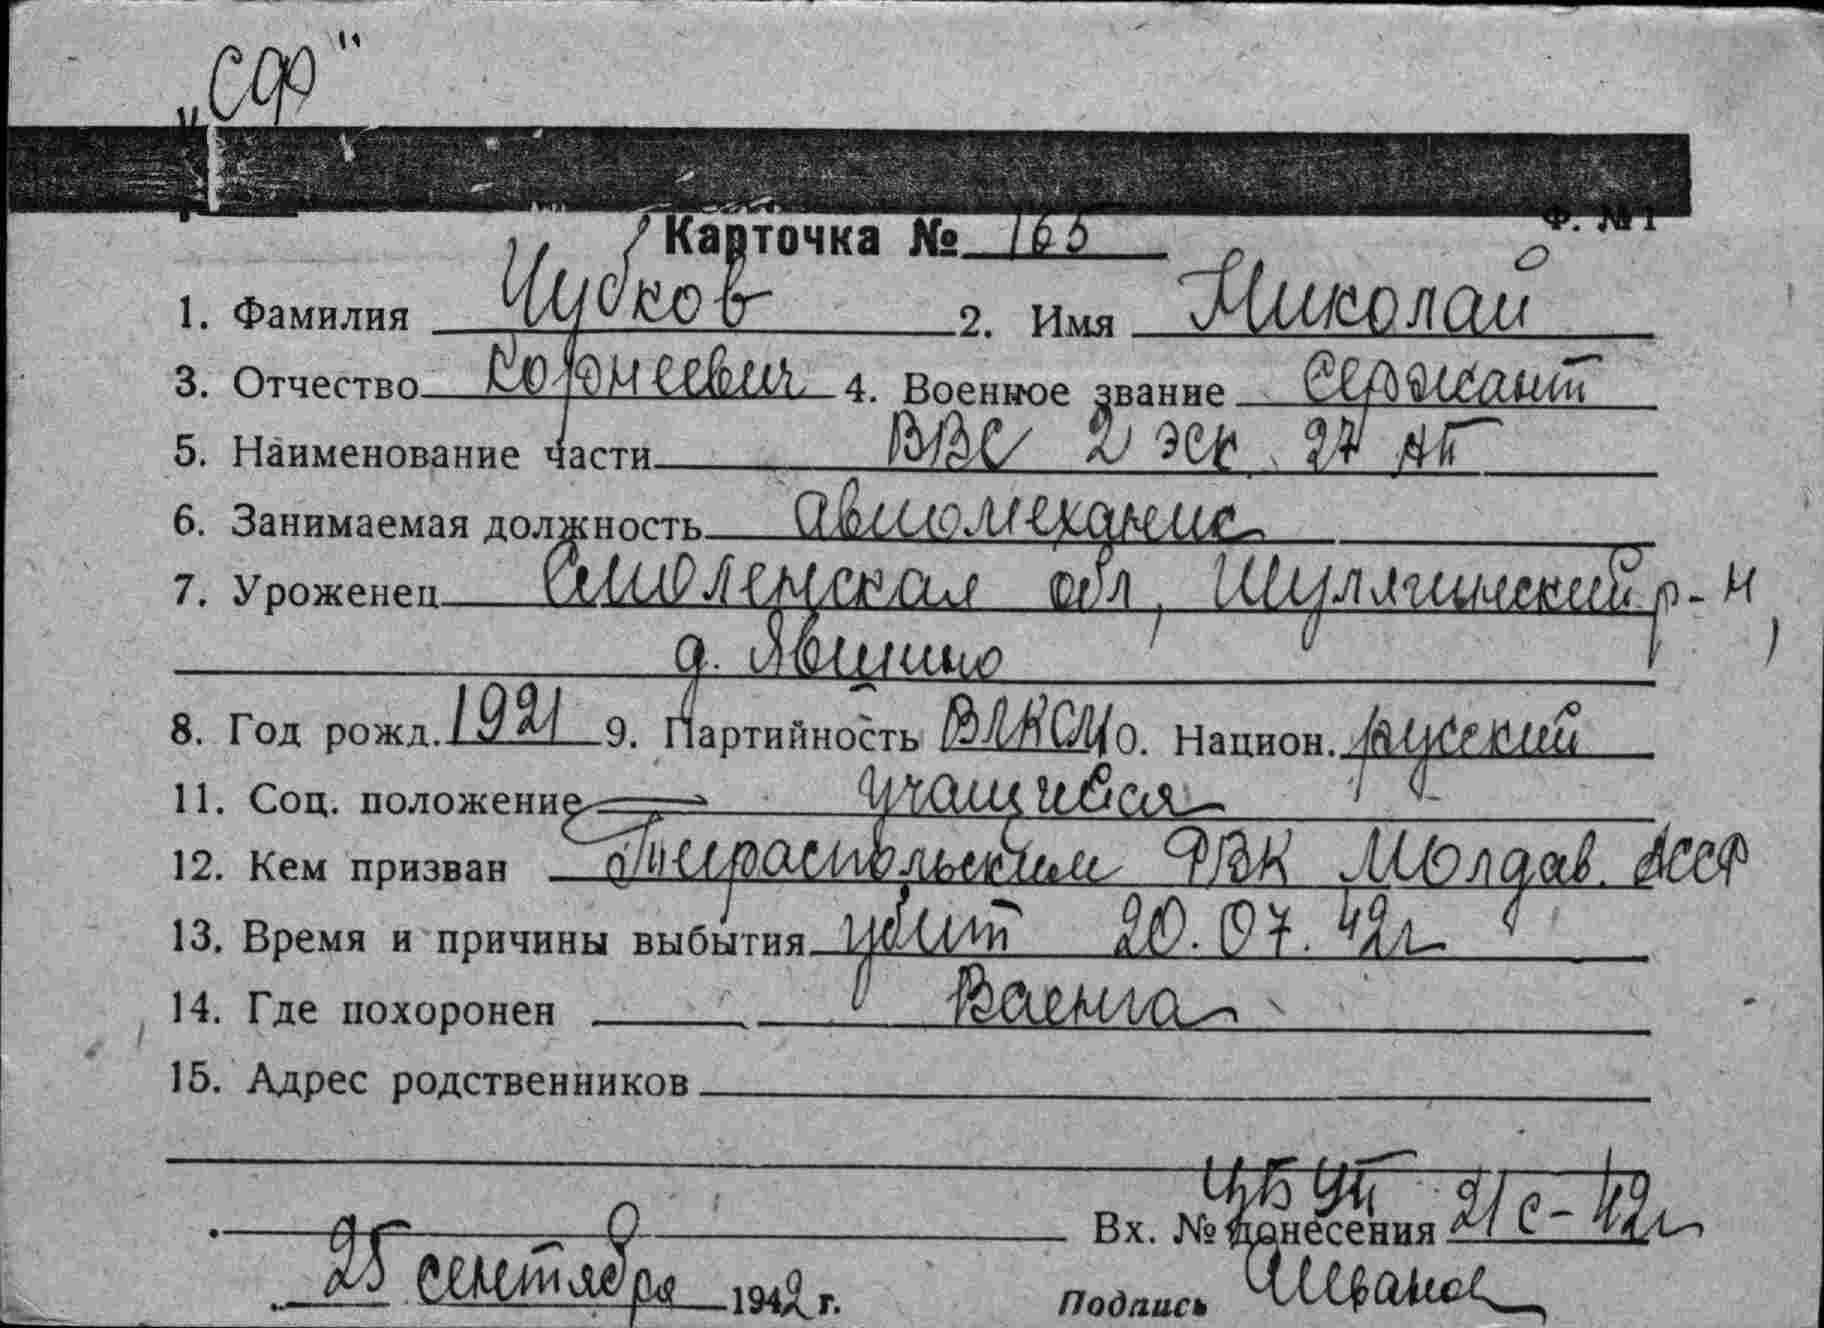 „СФ"
Ф. №1
Карточка № 165
1. Фамилия Чубков 2. Имя Николай
3. Отчество Корнеевич 4. Военное звание сержант
5. Наименование части ВВС 2 эск. 27 АП
6. Занимаемая должность авиомеханик
7. Уроженец Смоленская обл, Шумячинский р-н,
д. Явшино
8. Год рожд. 1921 9. Партийность ВЛКСМ 10. Национ. русский
11. Соц. положение учащийся
12. Кем призван Тираспольским РВК Молдав. АССР
13. Время и причины выбытия убит 20.07.42г
14. Где похоронен Ваенга
15. Адрес родственников
ЦБ УП
Вх. № донесения 21с-42г
25 сентября 1942 г. Подпись Иванов